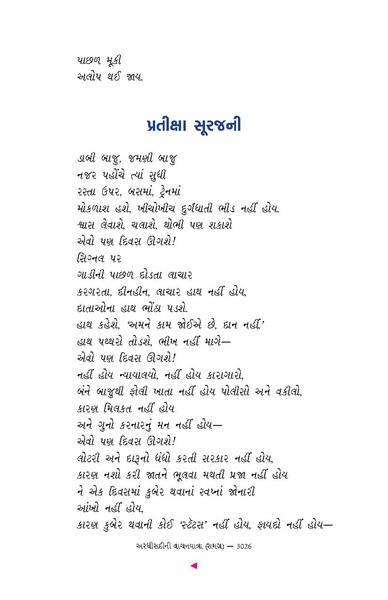 પાછળ મૂકી
અલોપ થઈ જાય.
પ્રતીક્ષા સૂરજની
ડાબી બાજુ, જમણી બાજુ
નજર પહોંચે ત્યાં સુધી
રસ્તા ઉપર, બસમાં, ટ્રેનમાં
મોકળાશ હશે, ખીચોખીચ દુર્ગંધાતી ભીડ નહીં હોય.
શ્વાસ લેવાશે, ચલાશે, થોભી પણ શકાશે
એવો પણ દિવસ ઊગશે!
સિગ્નલ પર
ગાડીની પાછળ દોડતા લાચાર
કરગરતા, દીનહીન, લાચાર હાથ નહીં હોય,
દાતાઓના હાથ ભોંઠા પડશે.
હાથ કહેશે, ‘અમને કામ જોઈએ છે, દાન નહીં.’
હાથ પથ્થરો તોડશે, ભીખ નહીં માગે—
એવો પણ દિવસ ઊગશે!
નહીં હોય ન્યાયાલયો, નહીં હોય કારાગારો,
બંને બાજુથી ફોલી ખાતા નહીં હોય પોલીસો અને વકીલો,
કારણ મિલકત નહીં હોય
અને ગુનો કરનારનું મન નહીં હોય—
એવો પણ દિવસ ઊગશે!
લોટરી અને દારૂનો ધંધો કરતી સરકાર નહીં હોય,
કારણ નશો કરી જાતને ભૂલવા મથતી પ્રજા નહીં હોય
ને એક દિવસમાં કુબેર થવાનાં સ્વપ્નાં જોનારી
આંખો નહીં હોય,
કારણ કુબેર થવાની કોઈ ‘સ્ટેટસ’ નહીં હોય, ફાયદો નહીં હોય—
અરધીસદીની વાચનયાત્રા (સમગ્ર) — 3026